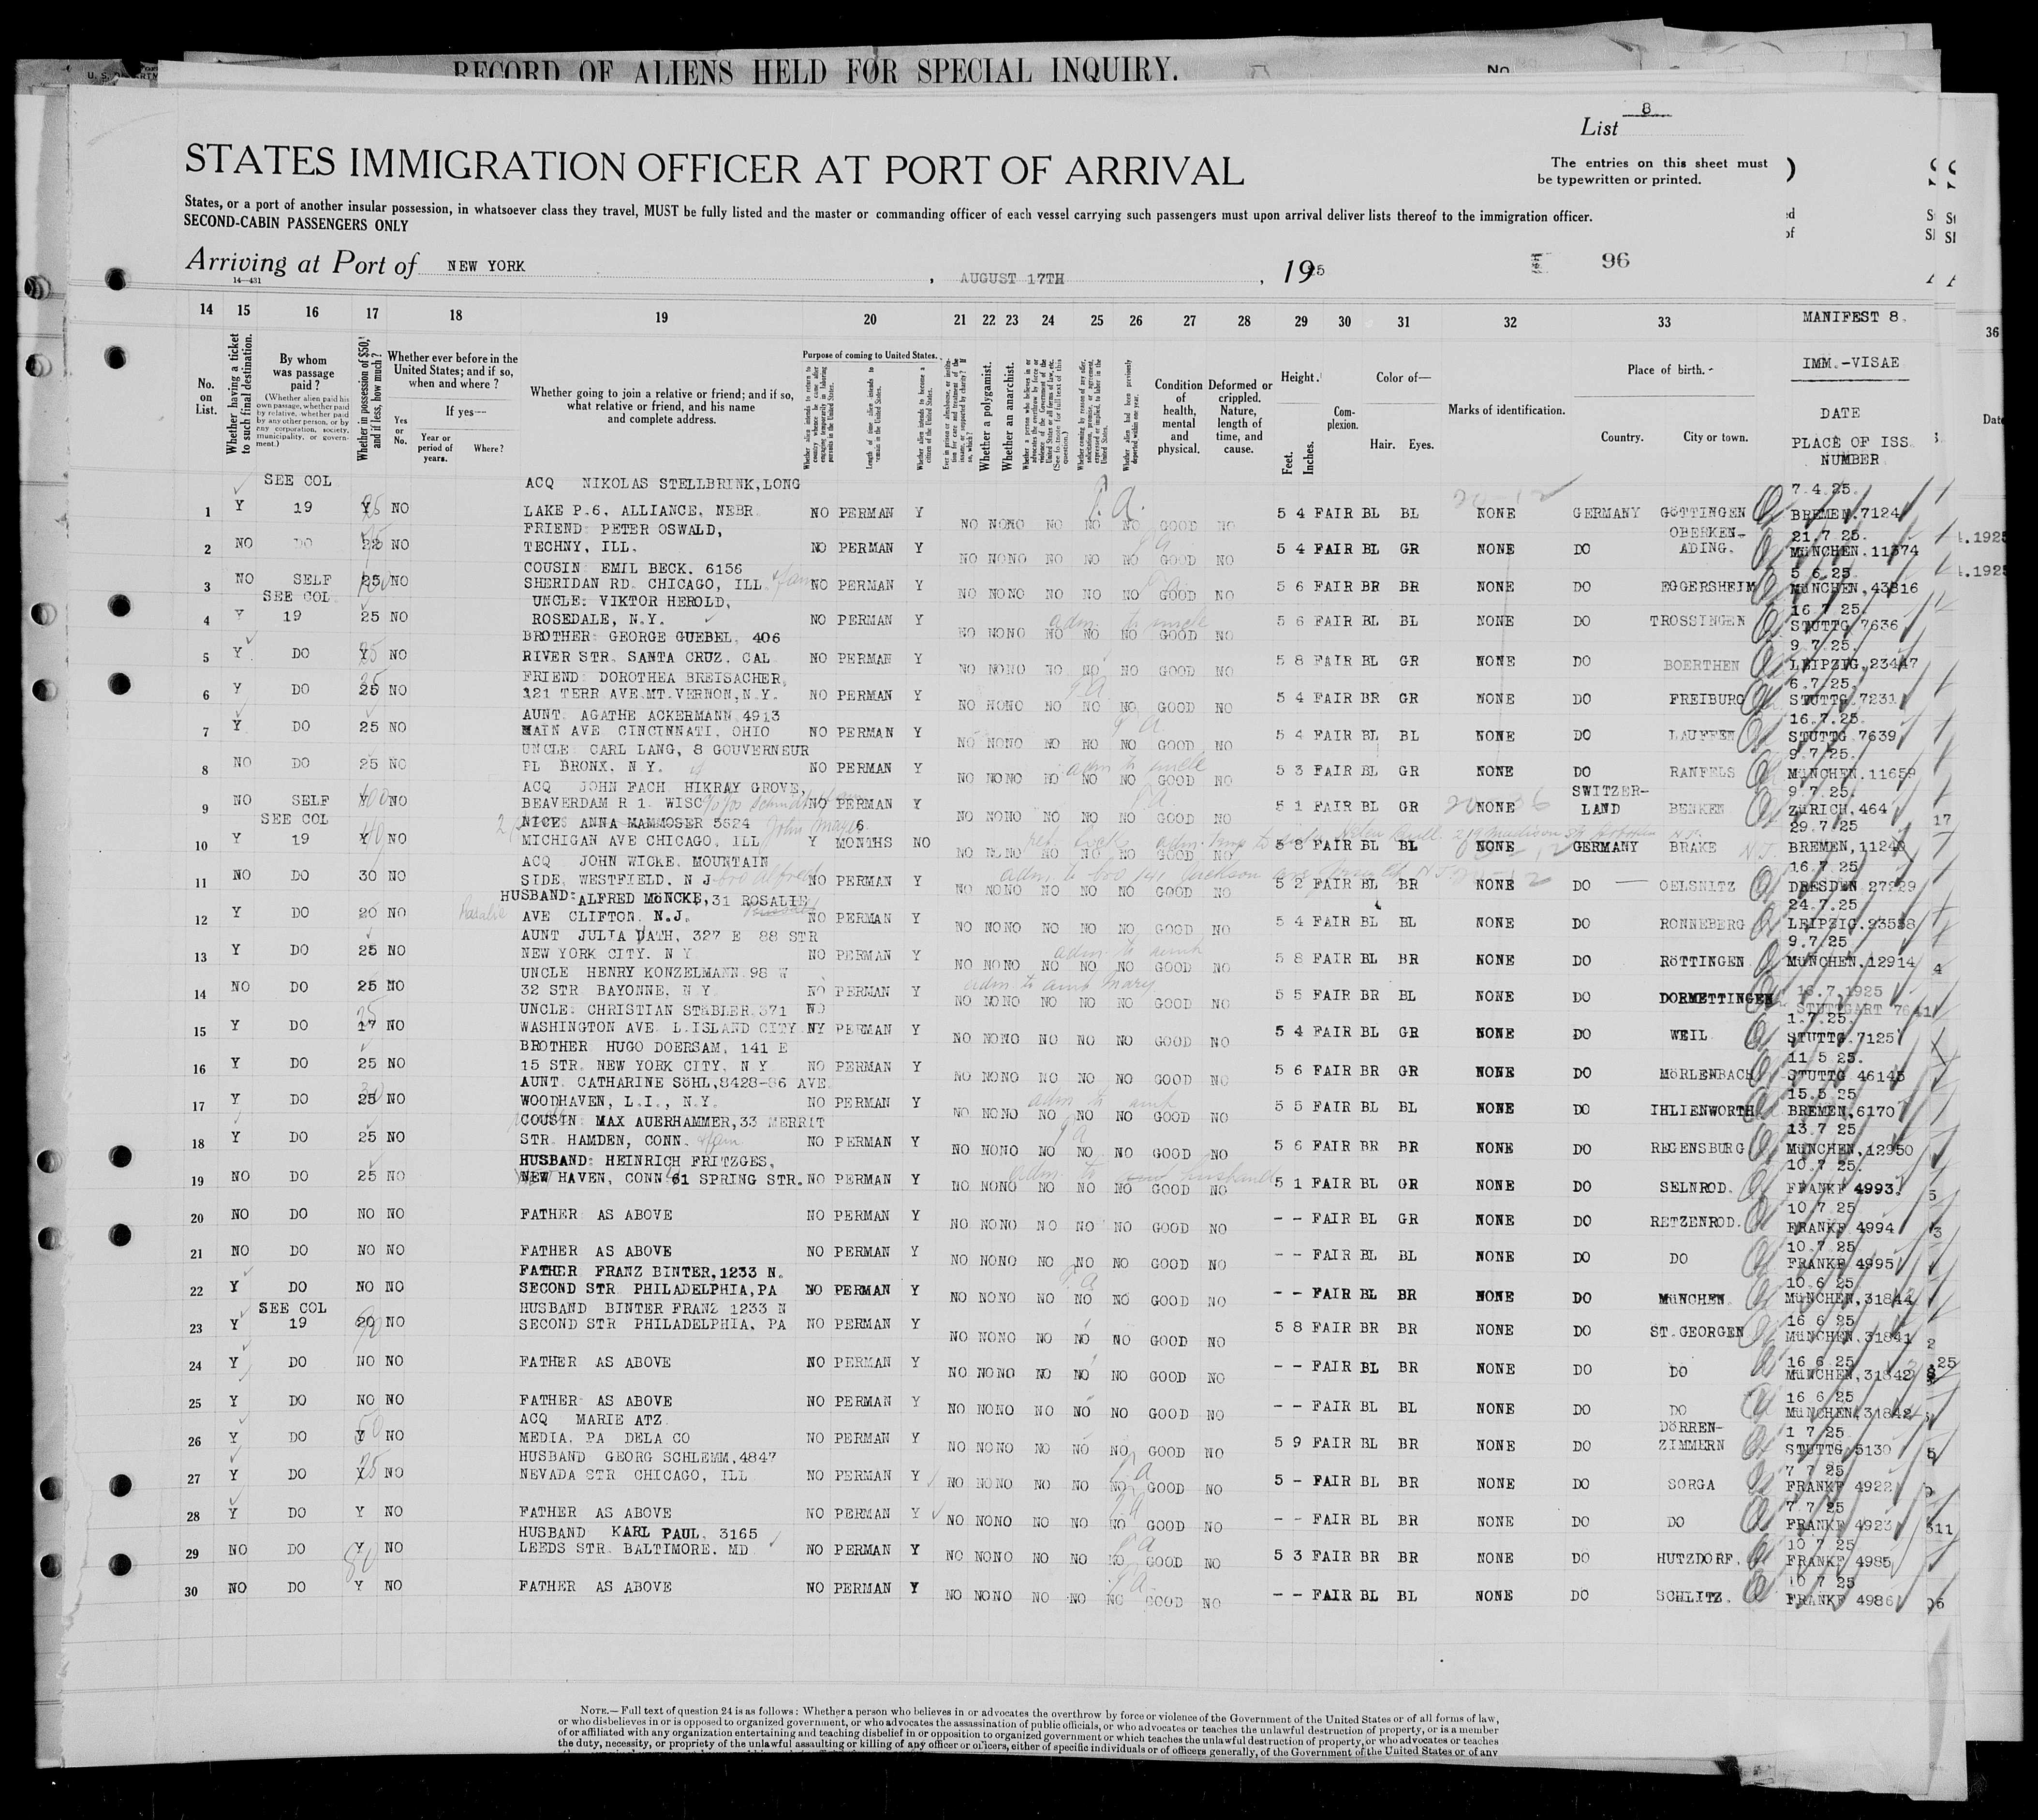 RECORD OF ALIENS HELD FOR SPECIAL INQUIRY.
No
List 8
STATES IMMIGRATION OFFICER AT PORT OF ARRIVAL
The entries on this sheet must
be typewritten or printed.
States, or a port of another insular possession, in whatsoever class they travel, MUST be fully listed and the master or commanding officer of each vessel carrying such passengers must upon arrival deliver lists thereof to the immigration officer.
SECOND-CABIN PASSENGERS ONLY
Arriving at Port of NEW YORK, AUGUST 17TH, 1925
96
14—431
14 15 16 17 18 19 20 21 22 23 24 25 26 27 28 29 30 31 32 33 MANIFEST 8. 36
No. on List.
Whether having a ticket to such final destination.
By whom was passage paid?
(Whether alien paid his own passage, whether paid by relative, whether paid by any other person, or by any corporation, society, municipality, or government.)
Whether in possession of $50, and if less, how much?
Whether ever before in the United States; and if so, when and where?
Yes or No.
If yes—
Year or period of years.
Where?
Whether going to join a relative or friend; and if so, what relative or friend, and his name and complete address.
Purpose of coming to United States.
Length of time alien intends to remain in the United States.
Whether alien intends to become a citizen of the United States.
Whether a polygamist.
Whether an anarchist.
Condition of health, mental and physical.
Deformed or crippled. Nature, length of time, and cause.
Height.
Feet.
Inches.
Complexion.
Color of—
Hair. Eyes.
Marks of identification.
Place of birth.
Country. City or town.
IMM.-VISAE
DATE
PLACE OF ISS.
NUMBER
SEE COL ACQ NIKOLAS STELLBRINK,LONG 7.4.25.
1 Y 19 Y NO LAKE P.6. ALLIANCE, NEBR. NO PERMAN Y NO NO NO NO NO NO GOOD NO 5 4 FAIR BL BL NONE GERMANY GöTTINGEN BREMEN.7124
FRIEND PETER OSWALD, OBERKEN- 21.7.25.
2 NO DO 22 NO TECHNY, ILL. NO PERMAN Y NO NO NO NO NO NO GOOD NO 5 4 FAIR BL GR NONE DO ADING. MüNCHEN.11374
COUSIN EMIL BECK. 6156 5 6 25
3 NO SELF 25 NO SHERIDAN RD. CHICAGO, ILL NO PERMAN Y NO NO NO NO NO NO GOOD NO 5 6 FAIR BR BR NONE DO EGGERSHEIM MüNCHEN.43816
SEE COL UNCLE: VIKTOR HEROLD, 16 7 25.
4 Y 19 25 NO ROSEDALE, N.Y. NO PERMAN Y adm. to uncle NO NO NO NO NO NO GOOD NO 5 6 FAIR BL BL NONE DO TROSSINGEN STUTTG 7636
BROTHER: GEORGE GUEBEL, 406 9 7.25.
5 Y DO Y NO RIVER STR. SANTA CRUZ. CAL NO PERMAN Y NO NO NO NO NO NO GOOD NO 5 8 FAIR BL GR NONE DO BOERTHEN LEIPZIG.23447
FRIEND: DOROTHEA BREISACHER, 6.7/25.
6 Y DO 25 NO 121 TERR AVE.MT.VERNON,N.Y. NO PERMAN Y NO NO NO NO NO NO GOOD NO 5 4 FAIR BR GR NONE DO FREIBURG STUTTG.7231
AUNT AGATHE ACKERMANN 4913 16.7.25.
7 Y DO 25 NO MAIN AVE CINCINNATI, OHIO NO PERMAN Y NO NO NO NO NO NO GOOD NO 5 4 FAIR BL BL NONE DO LAUFFEN STUTTG.7639
UNCLE CARL LANG, 8 GOUVERNEUR 9 7.25.
8 NO DO 25 NO PL BRONX. N Y. NO PERMAN Y adm to uncle NO NO NO NO NO NO GOOD NO 5 3 FAIR BL GR NONE DO RANFELS MüNCHEN.11659
ACQ JOHN FACH HIKRAY GROVE, SWITZER- 9 7.25.
9 NO SELF Y NO BEAVERDAM R 1. WISC NO PERMAN Y NO NO NO NO NO NO GOOD NO 5 1 FAIR BL GR NONE LAND BENKEN ZüRICH,464
SEE COL NICE ANNA MAMMOSER 5624 6 29.7.25
10 Y 19 Y NO MICHIGAN AVE CHICAGO, ILL Y MONTHS NO NO NO NO NO NO NO GOOD NO 5 8 FAIR BL BL NONE GERMANY BRAKE BREMEN,11240
ACQ JOHN WICKE, MOUNTAIN 16.7.25
11 NO DO 30 NO SIDE, WESTFIELD, N J NO PERMAN Y NO NO NO NO NO NO GOOD NO 5 2 FAIR BL BR NONE DO OELSNITZ DRESDEN 27229
HUSBAND: ALFRED MöNCKE,31 ROSALIE 24.7.25
12 Y DO 20 NO Rosalie AVE CLIFTON N.J. NO PERMAN Y NO NO NO NO NO NO GOOD NO 5 4 FAIR BL BL NONE DO RONNEBERG LEIPZIG.23538
AUNT JULIA DATH, 327 E 88 STR 9.7/25
13 Y DO 25 NO NEW YORK CITY. N Y NO PERMAN Y adm. to aunt NO NO NO NO NO NO GOOD NO 5 8 FAIR BL BR NONE DO RöTTINGEN MüNCHEN,12914
UNCLE HENRY KONZELMANN 98 W
14 NO DO 25 NO 32 STR BAYONNE, N Y NO PERMAN Y adm to aunt Mary NO NO NO NO NO NO GOOD NO 5 5 FAIR BR BL NONE DO DORMETTINGEN 16.7.1925
STUTTGART 7641
UNCLE: CHRISTIAN STäBLER 371 NO 1.7.25.
15 Y DO 17 NO WASHINGTON AVE L.ISLAND CITY NY PERMAN Y NO NO NO NO NO NO GOOD NO 5 4 FAIR BL GR NONE DO WEIL STUTTG.7125
BROTHER HUGO DOERSAM, 141 E 11 5 25.
16 Y DO 25 NO 15 STR. NEW YORK CITY, N Y NO PERMAN Y NO NO NO NO NO NO GOOD NO 5 6 FAIR BR GR NONE DO MöRLENBACH STUTTG 46145
AUNT. CATHARINE SöHL,8428-86 AVE 15.5.25
17 Y DO 25 NO WOODHAVEN, L.I., N.Y. NO PERMAN Y adm to aunt NO NO NO NO NO NO GOOD NO 5 5 FAIR BL BL NONE DO IHLIENWORTH BREMEN,6170
COUSIN: MAX AUERHAMMER,33 MERRIT 13.7 25
18 Y DO 25 NO STR. HAMDEN, CONN. NO PERMAN Y NO NO NO NO NO NO GOOD NO 5 6 FAIR BR BR NONE DO REGENSBURG MüNCHEN,12950
HUSBAND: HEINRICH FRITZGES, 10.7 25.
19 NO DO 25 NO NEW HAVEN, CONN 61 SPRING STR. NO PERMAN Y adm to husband NO NO NO NO NO NO GOOD NO 5 1 FAIR BL GR NONE DO SELNROD. FRANKF 4993.
10 7 25
20 NO DO NO NO FATHER AS ABOVE NO PERMAN Y NO NO NO NO NO NO GOOD NO - - FAIR BL GR NONE DO RETZENROD. FRANKF 4994
10.7 25
21 NO DO NO NO FATHER AS ABOVE NO PERMAN Y NO NO NO NO NO NO GOOD NO - - FAIR BL BL NONE DO DO FRANKF 4995
FATHER FRANZ BINTER,1233 N. 10 6 25
22 Y DO NO NO SECOND STR PHILADELPHIA,PA NO PERMAN Y NO NO NO NO NO NO GOOD NO - - FAIR BL BR NONE DO MüNCHEN. MüNCHEN,31844
SEE COL HUSBAND BINTER FRANZ 1233 N 16 6 25
23 Y 19 20 NO SECOND STR PHILADELPHIA, PA NO PERMAN Y NO NO NO NO NO NO GOOD NO 5 8 FAIR BR BR NONE DO ST.GEORGEN MüNCHEN,31841
16 6 25
24 Y DO NO NO FATHER AS ABOVE NO PERMAN Y NO NO NO NO NO NO GOOD NO - - FAIR BL BR NONE DO DO MüNCHEN,31842
16 6 25
25 Y DO NO NO FATHER AS ABOVE NO PERMAN Y NO NO NO NO NO NO GOOD NO - - FAIR BL BL NONE DO DO MüNCHEN,31842
ACQ MARIE ATZ DöRREN- 1 7 25.
26 Y DO Y NO MEDIA, PA DELA CO NO PERMAN Y NO NO NO NO NO NO GOOD NO 5 9 FAIR BL BR NONE DO ZIMMERN STUTTG,5130
HUSBAND GEORG SCHLEMM,4847 7 7 25
27 Y DO Y NO NEVADA STR CHICAGO, ILL NO PERMAN Y NO NO NO NO NO NO GOOD NO 5 - FAIR BL BR NONE DO SORGA FRANKF 4922
7 7 25
28 Y DO Y NO FATHER AS ABOVE NO PERMAN Y NO NO NO NO NO NO GOOD NO - - FAIR BL BR NONE DO DO FRANKF 4923
HUSBAND KARL PAUL, 3165 10 7 25
29 NO DO Y NO LEEDS STR. BALTIMORE. MD NO PERMAN Y NO NO NO NO NO NO GOOD NO 5 3 FAIR BR BR NONE DO HUTZDORF. FRANKF 4985
10 7 25
30 NO DO Y NO FATHER AS ABOVE NO PERMAN Y NO NO NO NO NO NO GOOD NO - - FAIR BL BL NONE DO SCHLITZ. FRANKF 4986
NOTE.—Full text of question 24 is as follows: Whether a person who believes in or advocates the overthrow by force or violence of the Government of the United States or of all forms of law,
or who disbelieves in or is opposed to organized government, or who advocates the assassination of public officials, or who advocates or teaches the unlawful destruction of property, or is a member
of or affiliated with any organization entertaining and teaching disbelief in or opposition to organized government or which teaches the unlawful destruction of property, or who advocates or teaches
the duty, necessity, or propriety of the unlawful assaulting or killing of any officer or officers, either of specific individuals or of officers generally, of the Government of the United States or of any